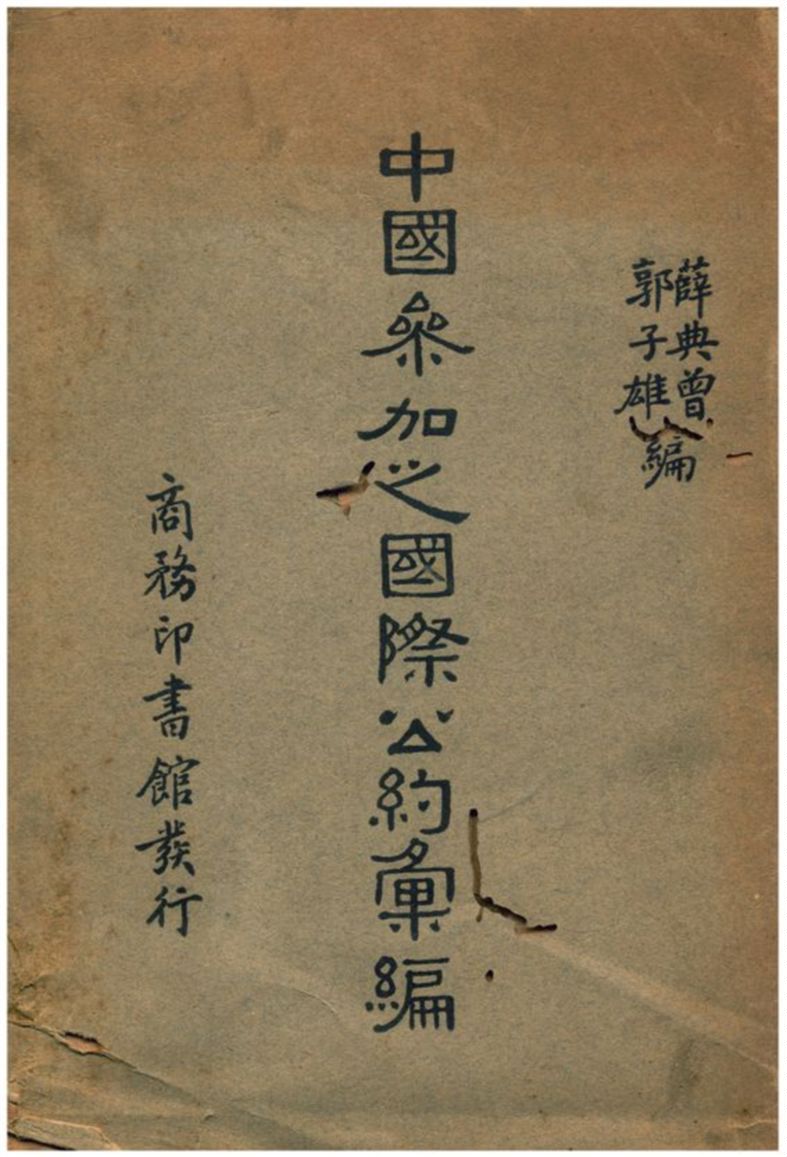 薛典曾
郭子雄
編
中國參加之國際公約彙編
商務印書館發行